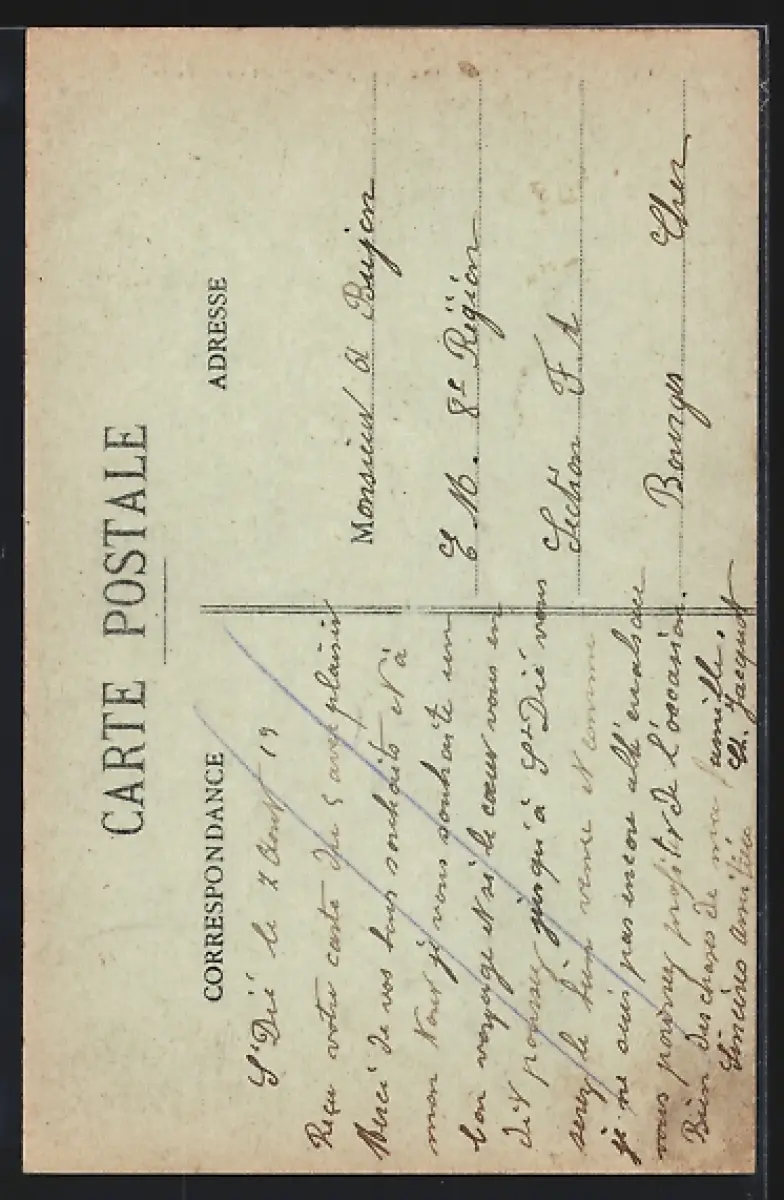 CARTE POSTALE
CORRESPONDANCE
ADRESSE
St Dié le 7 Aout 19
Reçu votre carte du 5 avec plaisir
Merci de vos bons souhaits et à
mon tour je vous souhaite un
bon voyage et si le cœur vous en
dit poussez jusqu'à St Dié vous
serez le bien venu et comme
je ne suis pas encore allé en alsace
vous pourrez profiter de l'occasion.
Bien des choses de ma famille.
Sincères amitiés Ch. Jacquot
Monsieur A
E M. 8e Région
Section F A
Bourges Cher